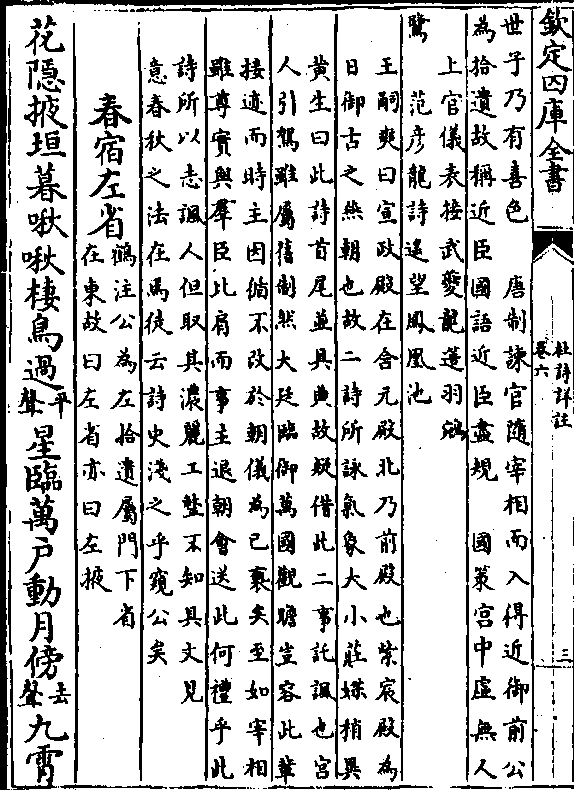 欽定四庫全書
杜詩詳註
卷六
三
世子乃有喜色　唐制諫官隨宰相而入得近御前公
為拾遺故稱近臣國語近臣盡規　國策宮中虛無人
上官儀表接武夔龍簉羽鵷
鷺　范彥龍詩遥望鳳凰池
王嗣奭曰宣政殿在含元殿北乃前殿也紫宸殿為
日御古之燕朝也故二詩所詠氣象大小莊媟稍異
黄生曰此詩首尾並具典故疑借此二事託諷也宮
人引駕雖屬舊制然大廷臨御萬國觀瞻豈容此輩
接迹而時主因循不改於朝儀為已褻矣至如宰相
雖尊實與羣臣比肩而事主退朝會送此何禮乎此
詩所以志諷人但取其濃麗工整不知具文見
意春秋之法在焉徒云詩史淺之乎窺公矣
春宿左省鶴注公為左拾遺屬門下省在東故曰左省亦曰左掖
花隱掖垣暮啾啾棲鳥過平聲星臨萬戶動月傍去聲九霄